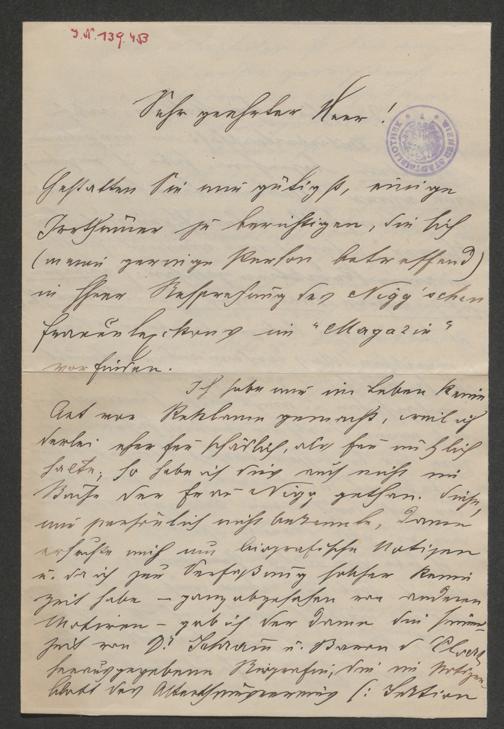 J.N. 139.453
WIENER STADTBIBLIOTHEK
Sehr geehrter Herr!
Gestatten Sie mir gütigst, einige
Irrthümer zu berichtigen, die sich
(meine geringe Person betreffend)
in Ihrer Besprechung des Nigg'schen
Frauenlexikons im "Magazin"
vorfinden.
Ich habe nie im Leben keine
Art von Reklame gemacht, weil ich
derlei eher für schädlich, als für nützlich
halte; so habe ich dies auch nicht im
Buche der Frau Nigg gethan. Diese,
mir persönlich nicht bekannte, Dame
ersuchte mich um biografische Notizen
u. da ich zur Verfaßung solcher keine
Zeit habe – ganz abgesehen von anderen
Motiven – gab ich der Dame die
zeit von Dr. u. Baron d
herausgegebene Biografie, die im Notizen
blatt des Alterthumsvereins (: Sektion